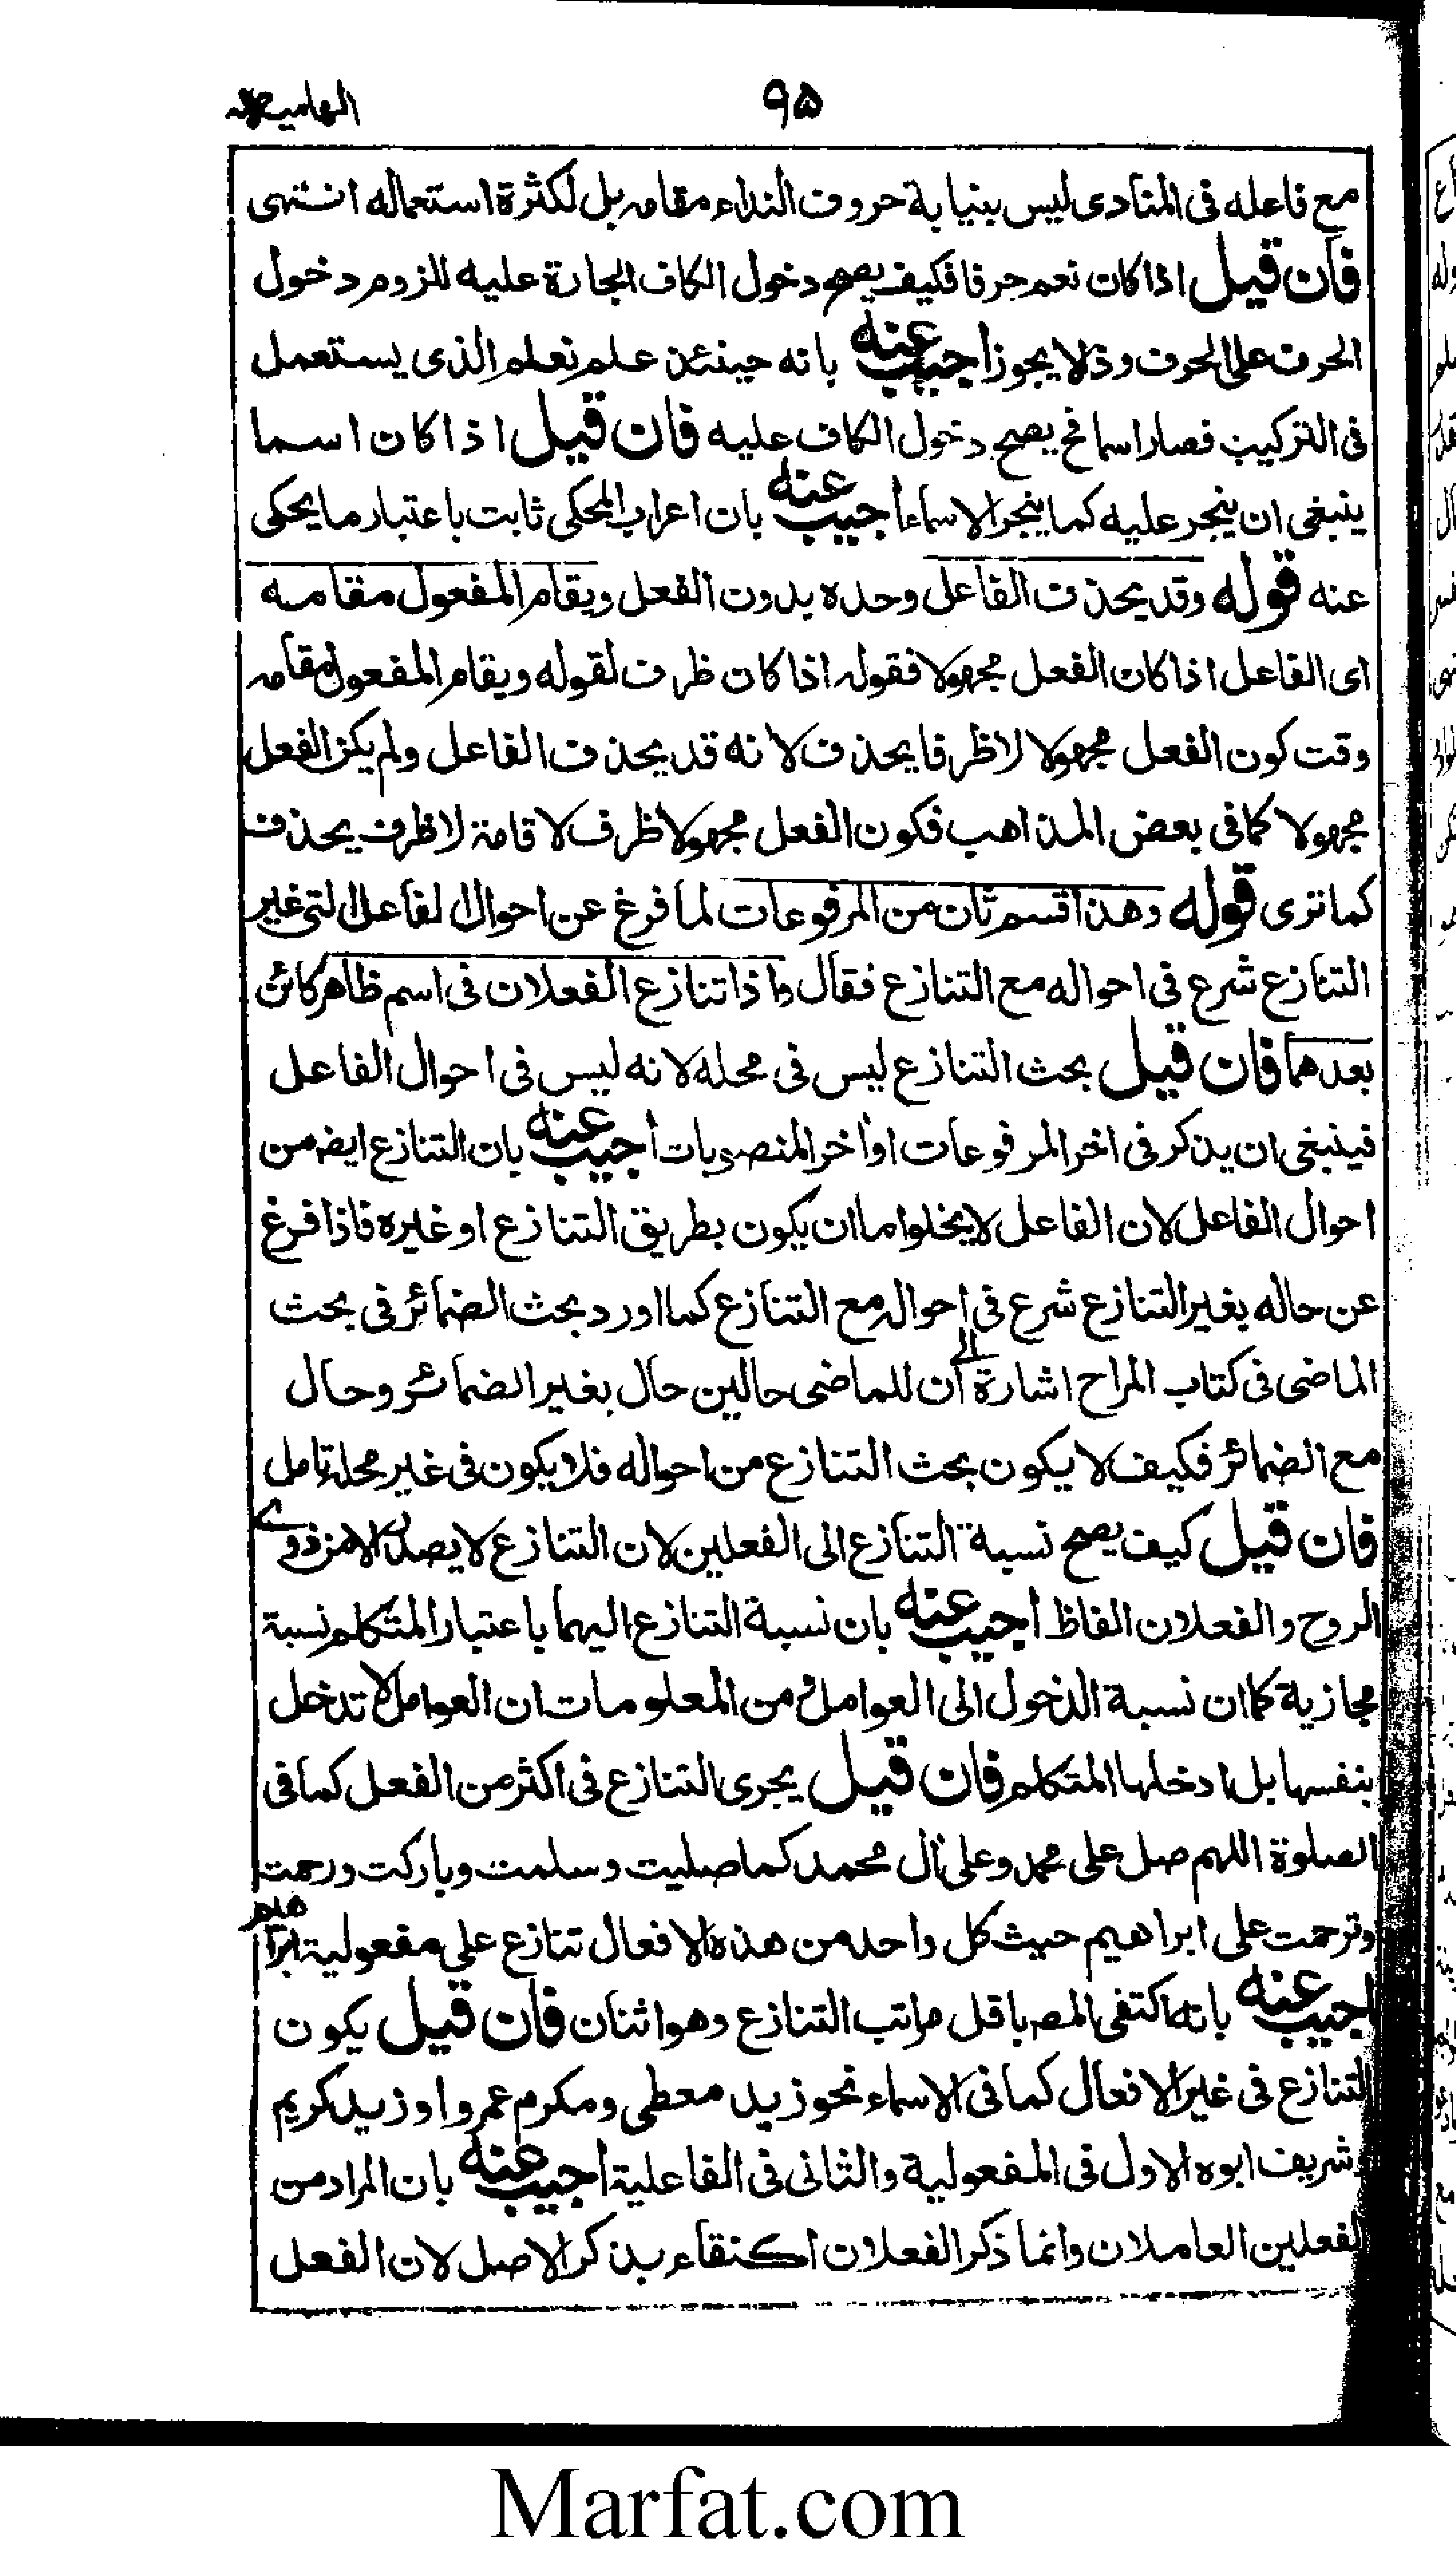 ۹۵
الهامیه
مع فاعله فى المنادى ليس بنيابة حروف النداء مقامه بل لكثرة استعماله انتهى
فان قيل اذا كان نعم حرفا فكيف يصح دخول الكاف الجارة عليه للزوم دخول
الحرف على الحرف وذلا يجوز اجيب عنه بانه حينئذ علم نعلم الذى يستعمل
فى التركيب فصار اسما فح يصح دخول الكاف عليه فان قيل اذا كان اسما
ينبغى ان ينجر عليه كما ينجر الاسماء اجيب عنه بان اعراب المحكى ثابت باعتبار ما يحكى
عنه قوله وقد يحذف الفاعل وحده بدون الفعل ويقام المفعول مقامه
اى الفاعل اذا كان الفعل مجهولا فقوله اذا كان ظرف لقوله ويقام المفعول مقامه
وقت كون الفعل مجهولا لا ظرفا يحذف لانه قد يحذف الفاعل ولم يكن الفعل
مجهولا كما فى بعض المذاهب فكون الفعل مجهولا ظرف لاقامة لا ظرف يحذف
كما ترى قوله وهذا قسم ثان من المرفوعات لما فرغ عن احوال الفاعل التى غير
التنازع شرع فى احواله مع التنازع فقال واذا تنازع الفعلان فى اسم ظاهر كائن
بعدهما فان قيل بحث التنازع ليس فى محله لانه ليس فى احوال الفاعل
فينبغى ان يذكر فى اخر المرفوعات او اخر المنصوبات اجيب عنه بان التنازع ايضا من
احوال الفاعل لان الفاعل لا يخلوا ما ان يكون بطريق التنازع او غيره فاذا فرغ
عن حاله بغير التنازع شرع فى احواله مع التنازع كما اورد بحث الضمائر فى بحث
الماضى فى كتاب المراح اشارة الى ان للماضى حالين حال بغير الضمائر وحال
مع الضمائر فكيف لا يكون بحث التنازع من احواله فلا يكون فى غير محله تامل
فان قيل كيف يصح نسبة التنازع الى الفعلين لان التنازع لا يصدر الا من ذوى
الروح والفعلان الفاظ اجيب عنه بان نسبة التنازع اليهما باعتبار المتكلم نسبة
مجازية كما ان نسبة الدخول الى العوامل من المعلومات ان العوامل لا تدخل
بنفسها بل ادخلها المتكلم فان قيل يجرى التنازع فى اكثر من الفعل كما فى
الصلوة اللهم صل على محمد وعلى ال محمد كما صليت وسلمت وباركت ورحمت
وترحمت على ابراهيم حيث كل واحد من هذه الافعال تنازع على مفعولية ابراهيم
اجيب عنه بانه اكتفى المصـ باقل مراتب التنازع وهو اثنان فان قيل يكون
التنازع فى غير الافعال كما فى الاسماء نحو زيد معطى ومكرم عمروا وزيد كريم
وشريف ابوه الاول فى المفعولية والثانى فى الفاعلية اجيب عنه بان المراد من
الفعلين العاملان وانما ذكر الفعلان اكتفاء بذكر الاصل لان الفعل
Marfat.com